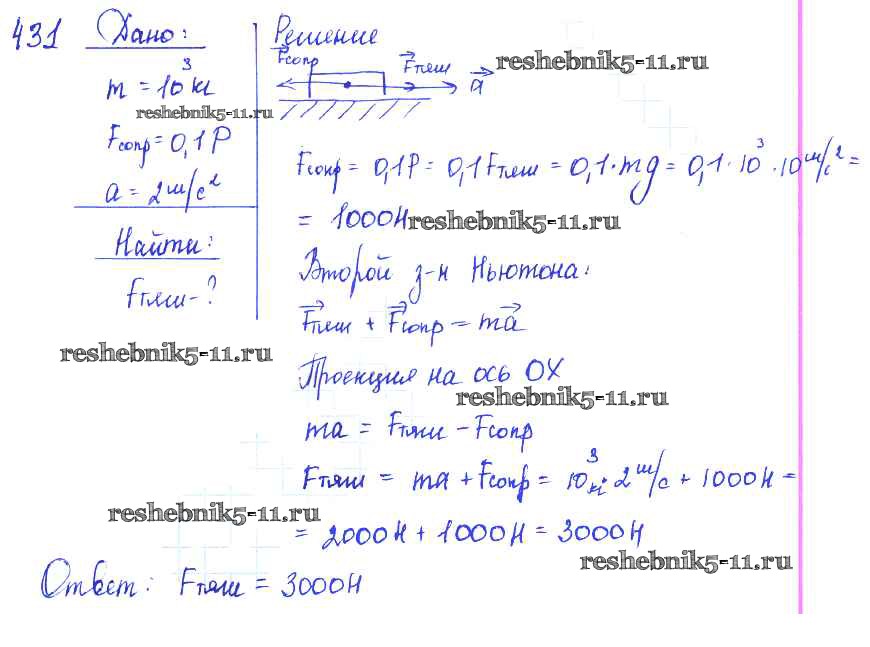 431 Дано:
m = 10³ кг
Fсопр = 0,1P
a = 2 м/с²
Найти:
Fтяги - ?
Решение
Fсопр Fтяги a
reshebnik5-11.ru
reshebnik5-11.ru
Fсопр = 0,1P = 0,1Fтяж = 0,1·mg = 0,1·10³·10 м/с² =
= 1000Н
reshebnik5-11.ru
Второй з-н Ньютона:
Fтяги + Fсопр = ma
reshebnik5-11.ru
Проекция на ось OX
reshebnik5-11.ru
ma = Fтяги - Fсопр
Fтяги = ma + Fсопр = 10³ кг · 2 м/с + 1000Н =
reshebnik5-11.ru
= 2000Н + 1000Н = 3000Н
reshebnik5-11.ru
Ответ: Fтяги = 3000Н